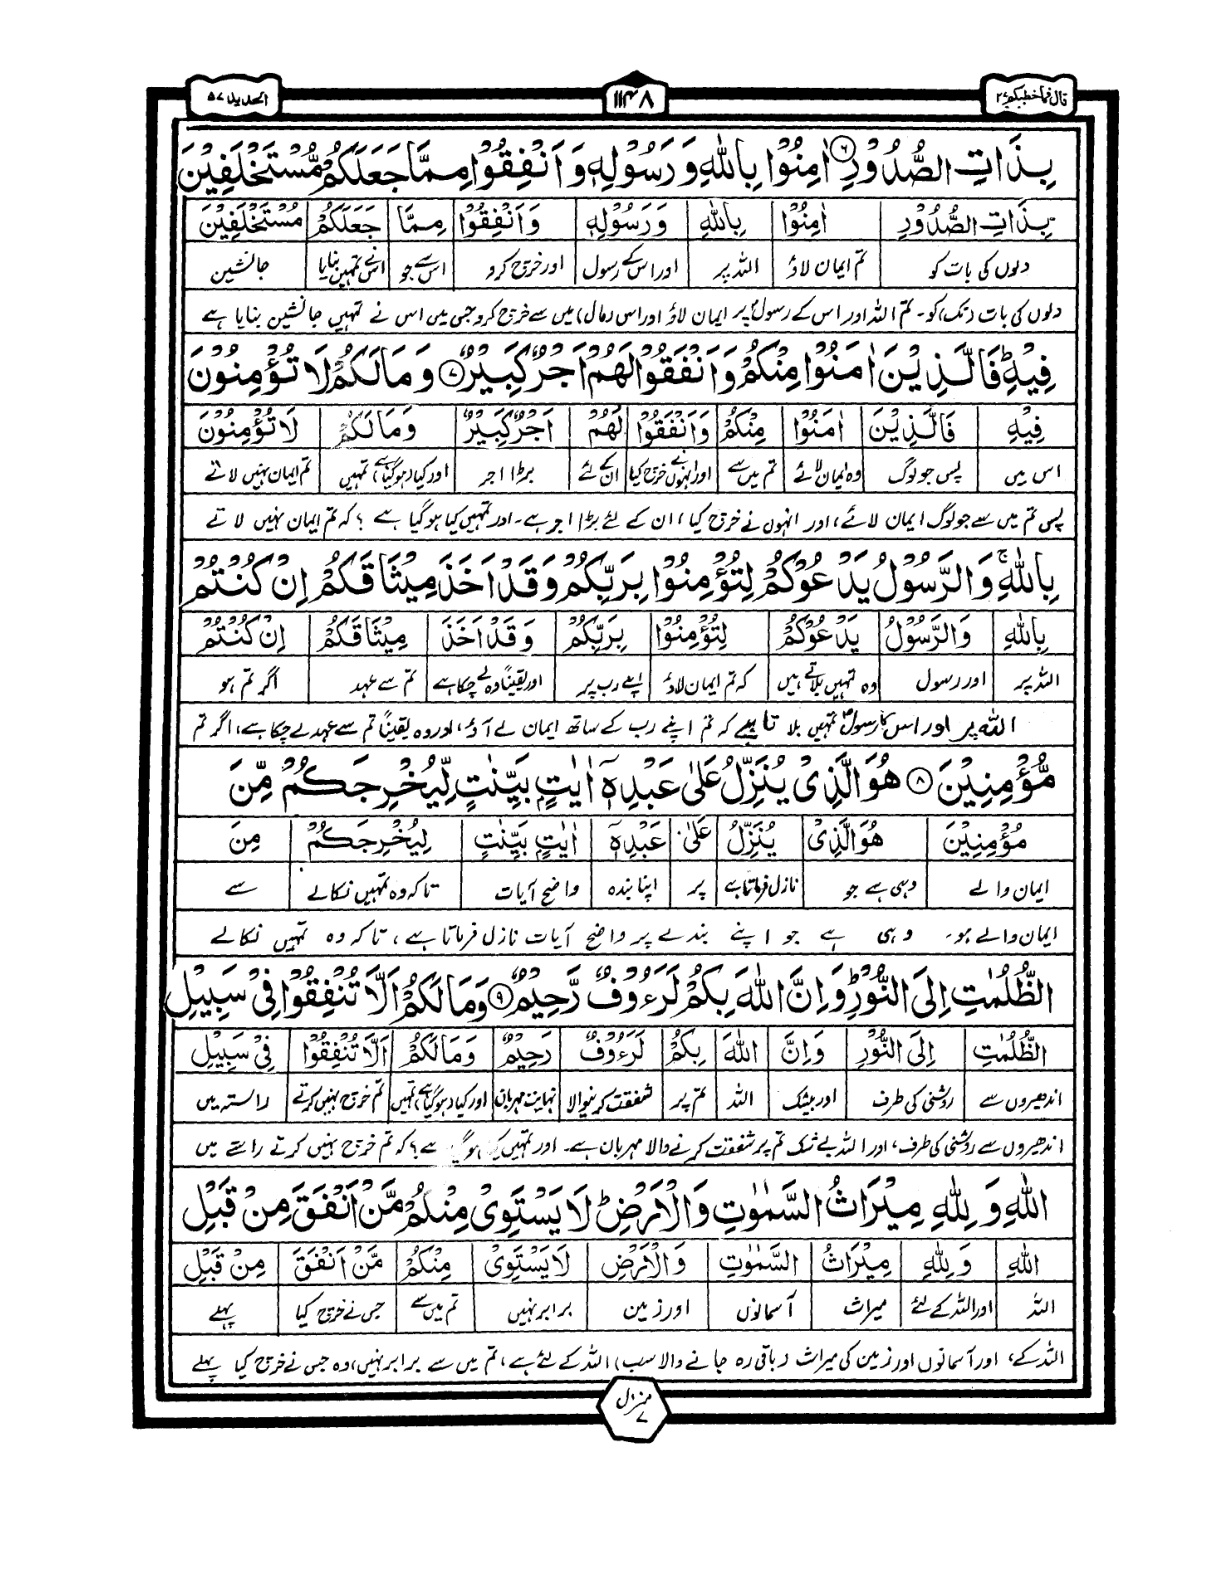 قال فما خطبکم ۲۷
۱۱۴۸
الحدید ۵۷
بِذَاتِ الصُّدُوْرِ ۶ اٰمِنُوْا بِاللّٰهِ وَ رَسُوْلِهٖ وَ اَنْفِقُوْا مِمَّا جَعَلَكُمْ مُّسْتَخْلَفِیْنَ
بِذَاتِ الصُّدُوْرِ اٰمِنُوْا بِاللّٰهِ وَ رَسُوْلِهٖ وَ اَنْفِقُوْا مِمَّا جَعَلَكُمْ مُسْتَخْلَفِیْنَ
دلوں کی بات کو تم ایمان لاؤ اللہ پر اور اس کے رسول اور خرچ کرو اس سے جو اس نے تمہیں بنایا جانشین
دلوں کی بات (تک) کو۔ تم اللہ اور اس کے رسولؐ پر ایمان لاؤ اور اس (مال) میں سے خرچ کرو جس میں اس نے تمہیں جانشین بنایا ہے
فِیْهِ ؕ فَالَّذِیْنَ اٰمَنُوْا مِنْكُمْ وَ اَنْفَقُوْا لَهُمْ اَجْرٌ كَبِیْرٌ ۷ وَ مَا لَكُمْ لَا تُؤْمِنُوْنَ
فِیْهِ فَالَّذِیْنَ اٰمَنُوْا مِنْكُمْ وَ اَنْفَقُوْا لَهُمْ اَجْرٌ كَبِیْرٌ وَ مَا لَكُمْ لَا تُؤْمِنُوْنَ
اس میں پس جو لوگ وہ ایمان لائے تم میں سے اور انہوں نے خرچ کیا ان کے لئے بڑا اجر اور کیا (ہو گیا ہے) تمہیں تم ایمان نہیں لاتے
پس تم میں سے جو لوگ ایمان لائے، اور انہوں نے خرچ کیا، ان کے لئے بڑا اجر ہے۔ اور تمہیں کیا ہو گیا ہے ؟ کہ تم ایمان نہیں لاتے
بِاللّٰهِ ۚ وَ الرَّسُوْلُ یَدْعُوْكُمْ لِتُؤْمِنُوْا بِرَبِّكُمْ وَ قَدْ اَخَذَ مِیْثَاقَكُمْ اِنْ كُنْتُمْ
بِاللّٰهِ وَ الرَّسُوْلُ یَدْعُوْكُمْ لِتُؤْمِنُوْا بِرَبِّكُمْ وَ قَدْ اَخَذَ مِیْثَاقَكُمْ اِنْ كُنْتُمْ
اللہ پر اور رسول وہ تمہیں بلاتے ہیں کہ تم ایمان لاؤ اپنے رب پر اور یقیناً وہ لے چکا ہے تم سے عہد اگر تم ہو
اللہ پر اور اس کا رسولؐ تمہیں بلا تا ہے کہ تم اپنے رب کے ساتھ ایمان لے آؤ، اور وہ یقیناً تم سے عہد لے چکا ہے، اگر تم
مُّؤْمِنِیْنَ ۸ هُوَ الَّذِیْ یُنَزِّلُ عَلٰی عَبْدِهٖۤ اٰیٰتٍۭ بَیِّنٰتٍ لِّیُخْرِجَكُمْ مِّنَ
مُؤْمِنِیْنَ هُوَ الَّذِیْ یُنَزِّلُ عَلٰی عَبْدِهٖۤ اٰیٰتٍۭ بَیِّنٰتٍ لِیُخْرِجَكُمْ مِنَ
ایمان والے وہی ہے جو نازل فرماتا ہے پر اپنا بندہ واضح آیات تاکہ وہ تمہیں نکالے سے
ایمان والے ہو۔ وہی ہے جو اپنے بندے پر واضح آیات نازل فرماتا ہے، تاکہ وہ تمہیں نکالے
الظُّلُمٰتِ اِلَی النُّوْرِ ؕ وَ اِنَّ اللّٰهَ بِكُمْ لَرَءُوْفٌ رَّحِیْمٌ ۹ وَ مَا لَكُمْ اَلَّا تُنْفِقُوْا فِیْ سَبِیْلِ
الظُّلُمٰتِ اِلَی النُّوْرِ وَ اِنَّ اللّٰهَ بِكُمْ لَرَءُوْفٌ رَحِیْمٌ وَ مَا لَكُمْ اَلَّا تُنْفِقُوْا فِیْ سَبِیْلِ
اندھیروں سے روشنی کی طرف اور بیشک اللہ تم پر شفقت کرنیوالا نہایت مہربان اور کیا (ہو گیا ہے) تمہیں تم خرچ نہیں کرتے راستہ میں
اندھیروں سے روشنی کی طرف، اور اللہ بے شک تم پر شفقت کرنے والا مہربان ہے۔ اور تمہیں کیا ہو گیا ہے؟ کہ تم خرچ نہیں کرتے راستے میں
اللّٰهِ وَ لِلّٰهِ مِیْرَاثُ السَّمٰوٰتِ وَ الْاَرْضِ ؕ لَا یَسْتَوِیْ مِنْكُمْ مَّنْ اَنْفَقَ مِنْ قَبْلِ
اللّٰهِ وَ لِلّٰهِ مِیْرَاثُ السَّمٰوٰتِ وَ الْاَرْضِ لَا یَسْتَوِیْ مِنْكُمْ مَّنْ اَنْفَقَ مِنْ قَبْلِ
اللہ اور اللہ کے لئے میراث آسمانوں اور زمین برابر نہیں تم میں سے جس نے خرچ کیا پہلے
اللہ کے، اور آسمانوں اور زمین کی میراث (باقی رہ جانے والا سب) اللہ کے لئے ہے، تم میں سے برابر نہیں، وہ جس نے خرچ کیا پہلے
منزل ۷